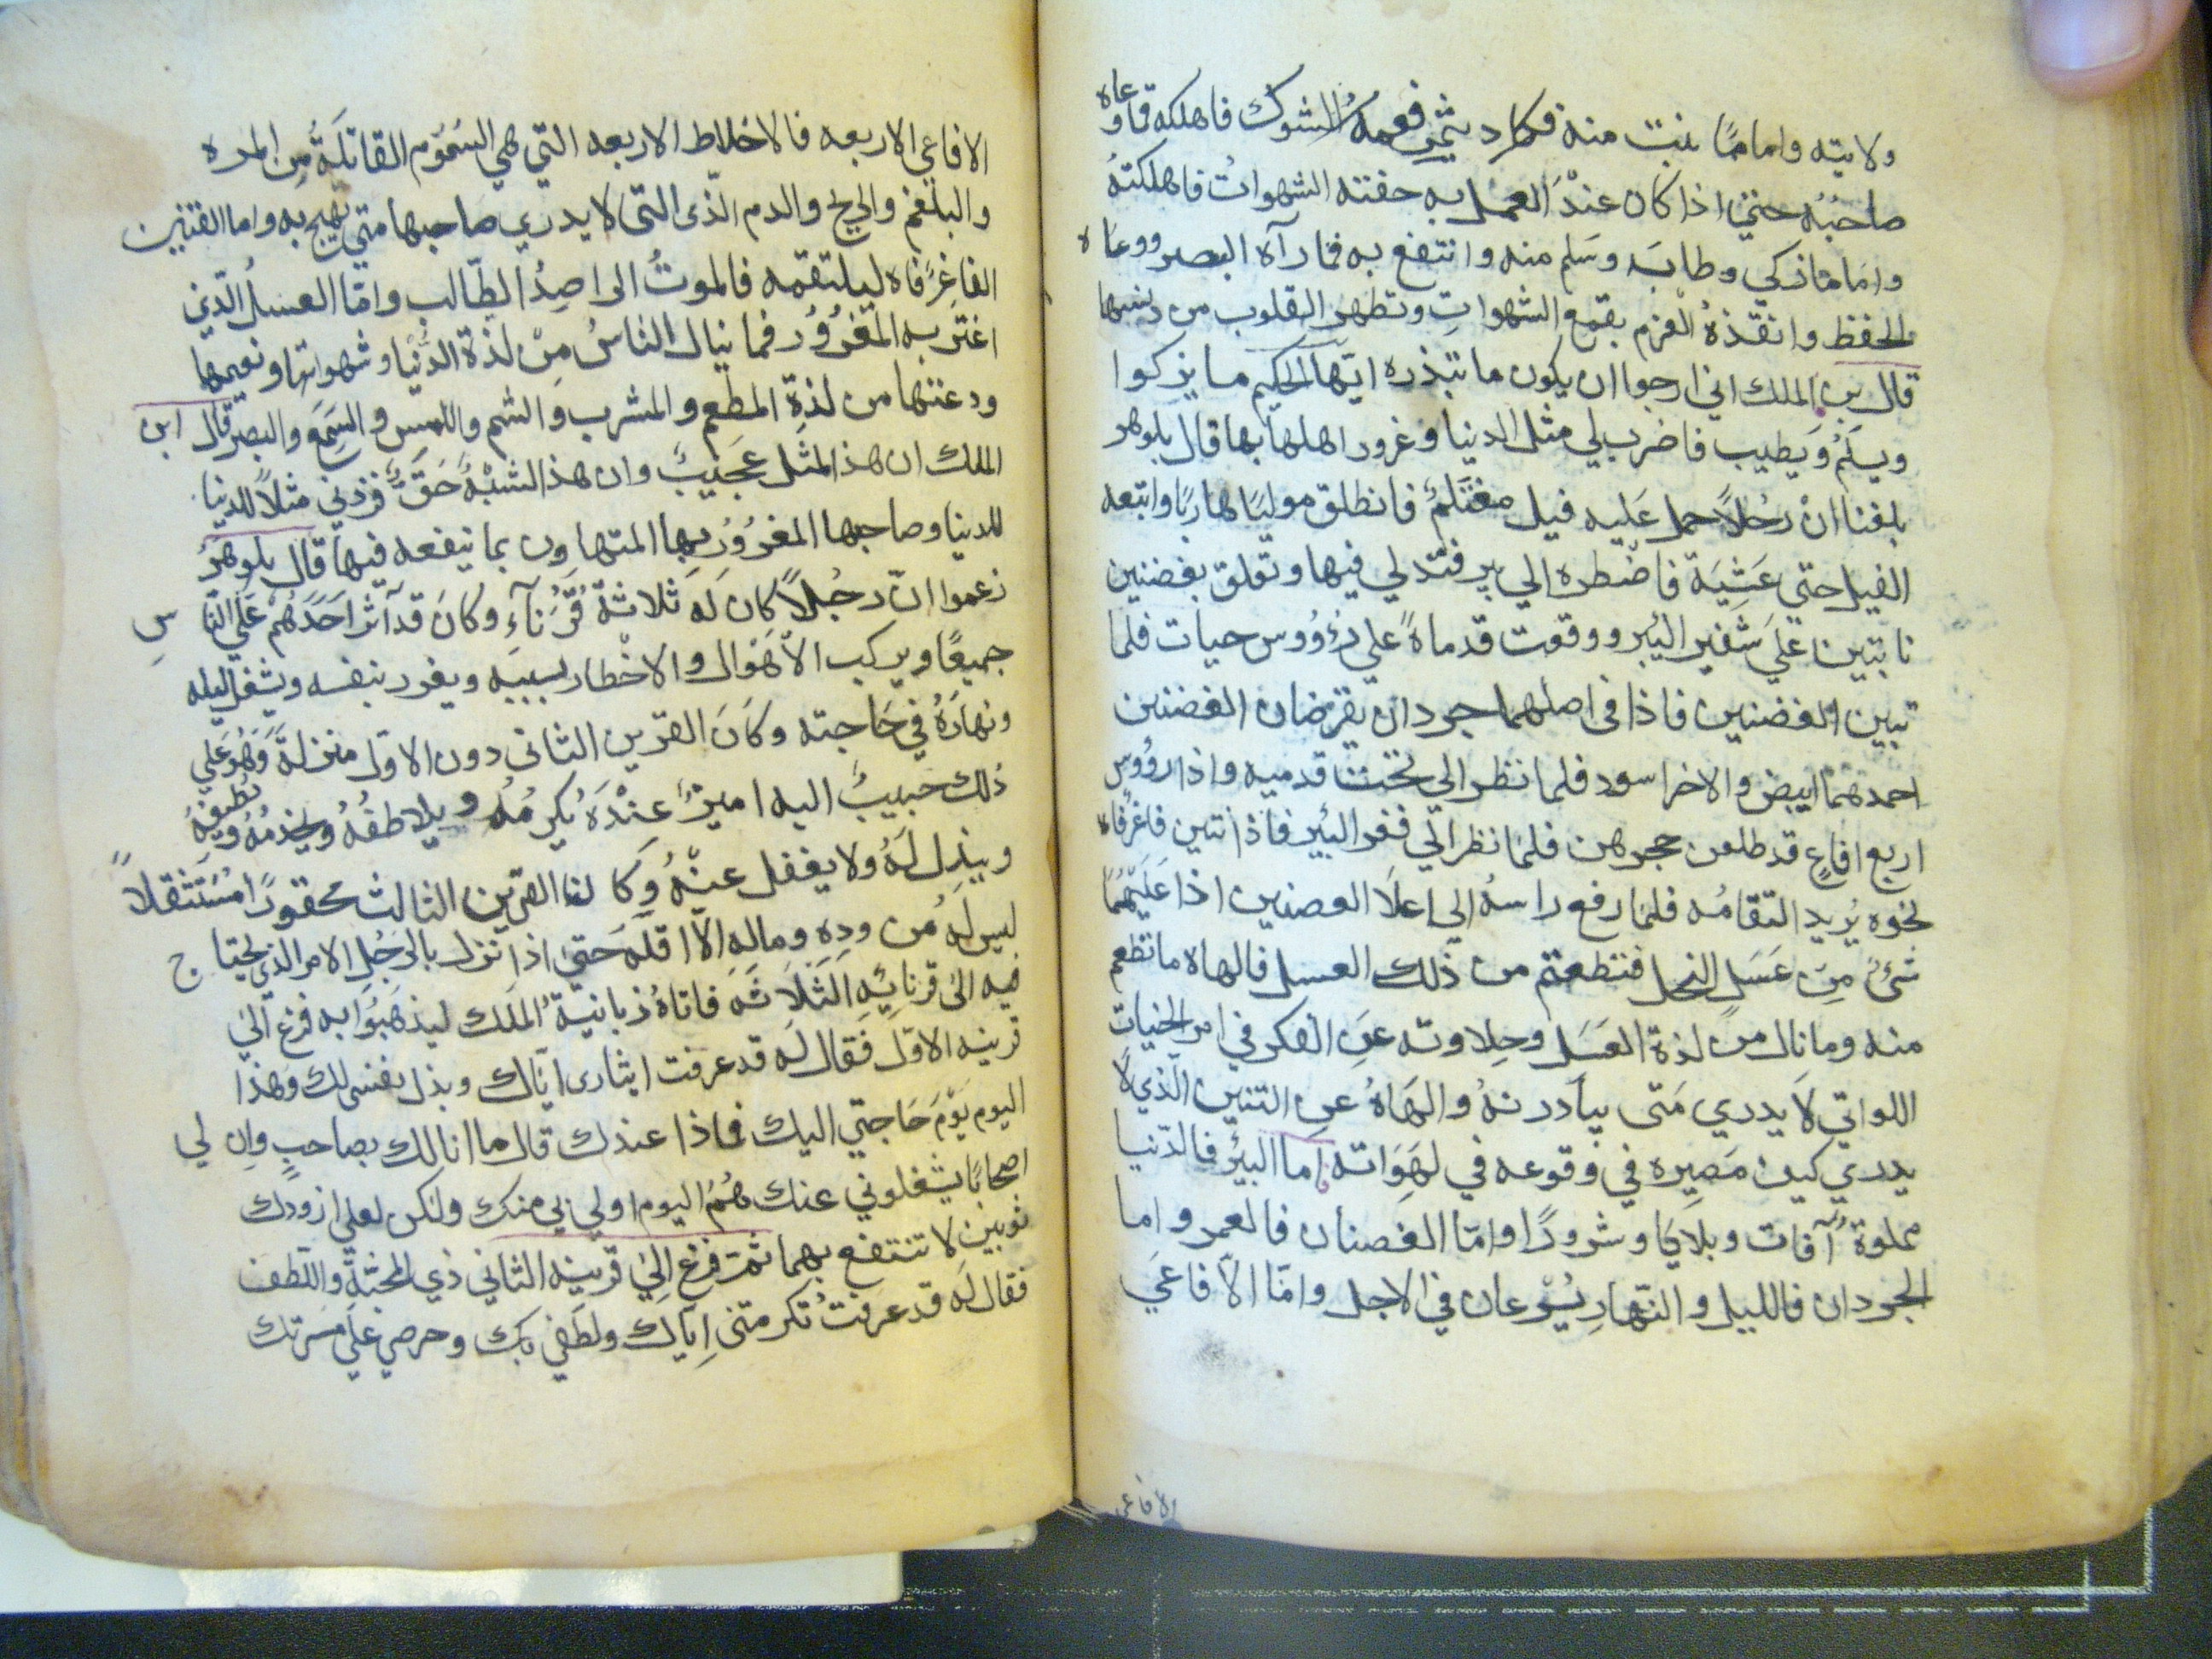 ولايته واما ما نبت منه فكاد يثمر فغمه الشوك فاهلكه فما وعاه
صاحبُه حتى اذا كان عندَ العمل به حفته الشهواتُ فاهلكتهُ
واما ما زكي وطابَ وسَلم منه وانتفع به فما رآه البصر ووعاه
الحفظ وانفذهُ العزم بقمع الشهواتِ وتطهر القلوب من دنسها
قال بن الملك اني ارجوا ان يكون ما تبذره ايّها الحكيم ما يزكوا
ويسلمُ ويَطيب فاضرب لي مثل الدنيا وغرور اهلها بها قال بلوهر
بلغنا انْ رجُلاً حمل عَليه فيل مغتلمٌ فانطلق موليًا هاربًا واتبعه
الفيل حتى غشِيَة فاضطره الي بير فتدلي فيها وتعلق بغصنين
نابتين عليَ شفير البير ووقعت قدماهُ علي رُؤُوس حيات فلما
تبين الغصنين فاذا في اصلهما جردان يقرضان الغصنين
احدهما ابيض والاخر اسود فلما نظر الي تحت قدميه واذا رؤُوس
اربع افاعٍ قد طلعن حجرهن فلما نظر الي قعر البئير فاذا تنين فاغرُفاه
نحوه يُريد التقامُه فلما رفع راسهُ الي اعلَا الغصنين اذا عَلَيْهُما
شئٌ مِنَ عَسَلِ النحل فتطعم من ذلك العسل فالهاه ما تطعم
منه وما نال من لذة العَسَل وحلاوته عنِ الفكر في امر الحيات
اللواتي لَا يدري مَتى يبادرنهُ والهَاهُ عن التنين الّذي لا
يدري كيف مَصِيره في وقوعه في لهَوَاته اما البيئر فالدّنيا
مملوةٌ آفات وبلايَا وشرورًا وامّا الغصنان فالعمر واما
الجردان فالليل والنّهارِ يُسْرعان في الاجل وامّا الآفاعَي
الافاعي
الافاعي الاربعه فالاخلاط الاربعه التي هي السُمُوم القاتلَةُ مِن المره
والبلغم والريح والدم الّذى التى لا يدري صاحبها متي تهيج به واما التنين
الفاغرُفاه ليلتقمه فالموتُ الراصِدُ الطّالب وامّا العسلُ الّذي
اغتر به المَغرُوُر فما ينال الناسُ مِنْ لذة الدُّنيْا وشهواتها ونعيمها
ودعتها من لذةِ المطعم والمشرب والشم واللمس والسَمِعَ والبصر قال ابن
الملك ان هذ المثل عجَيبٌ وان هذ الشبْهُ حَقٌّ فزدني مثلاً للدنيا
للدنيا وصاحبها المغرُوُرِ بها المتهاون بما ينفعه فيها قال بلوهرُ
زعموا انّ رجُلاً كان لَه ثلاثةُ قُرَناءِ وكانَ قد آثر احَدَهُمْ عَلَي النّاسِ
جميعًا ويركب الأهْوال والاخْطار بسببه ويغرر بنفسه ويشغل ليله
ونهارَهُ في حَاجته وكَانَ القرين الثانى دون الاوّل منزلهً وَهُوَ علي
ذلك حبيبٌ اليه اميرٌ عنْدَهَ يُكرمُه ويلاطفُهُ ويخدمُهُ ويُطيفهُ
ويبذِل لَهُ ولا يغفل عنْهُ وكَان القرين الثالث محقورًا مُسَتَثقلاً
ليس لَهُ من ودِه ومالهِ الاّ اقلَه حَتيَ اذا نزل بالرَجُلِ الامر الذى يحتاج
فيه الىَ قرنايُهِ الثَلَاثَه فاتاهُ زبانيةُ الملَك ليذهَبُوا به فزع الَى
قرينه الاوّل فقال لَه قد عرفت ايثارى ايّاك وبذل نفسى لك وَهذا
اليوم يَوْمَ حَاجتي اليك فماذا عندك قال ما انا لك بصاحبٍ وان لي
اصحابًا يشغلوني عنك هُمُ اليوم اولي بي منك ولكن لعلي ازودك
ثوبين لا تنتفع بهما ثم فزع اليَ قرينه الثاني ذي المحبّة واللّطف
فقال لَه قد عَرفتُ تكرمتى اِيّاك ولطَفي بك وحرصي علَي مَسرتك